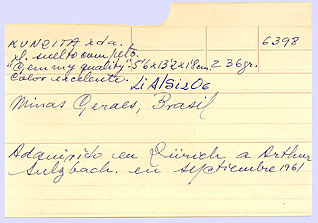 KUNCITA xda. 6398
xl. suelto completo.
"Gemmy quality" 5'6x13'2x1'8cm. 236gr.
Color excelente. LiAlSi2O6
Minas Geraes, Brasil
Adquirido en Zürich a Arthur
Sulzbach. en septiembre 1961